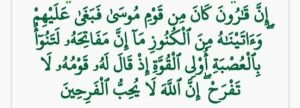 إِنَّ قَٰرُونَ كَانَ مِن قَوْمِ مُوسَىٰ فَبَغَىٰ عَلَيْهِمْ
وَءَاتَيْنَٰهُ مِنَ ٱلْكُنُوزِ مَآ إِنَّ مَفَاتِحَهُۥ لَتَنُوٓأُ
بِٱلْعُصْبَةِ أُو۟لِى ٱلْقُوَّةِ إِذْ قَالَ لَهُۥ قَوْمُهُۥ لَا
تَفْرَحْ إِنَّ ٱللَّهَ لَا يُحِبُّ ٱلْفَرِحِينَ